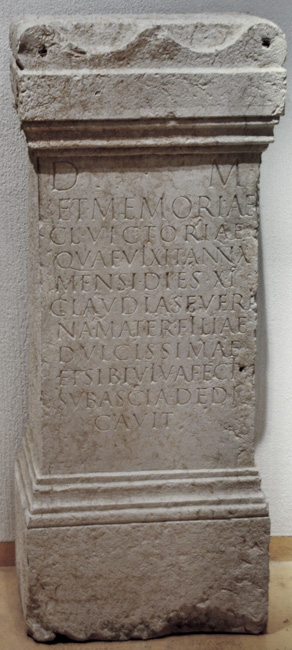 D M
ET MEMORIAE
CL VICTORIAE
QVAE VIXIT ANN X
MENS I DIES XI
CLAVDIA SEVER
INA MATER FILIAE
DVLCISSIMAE
ET SIBI VIVA FECIT
SVB ASCIA DEDI
CAVIT